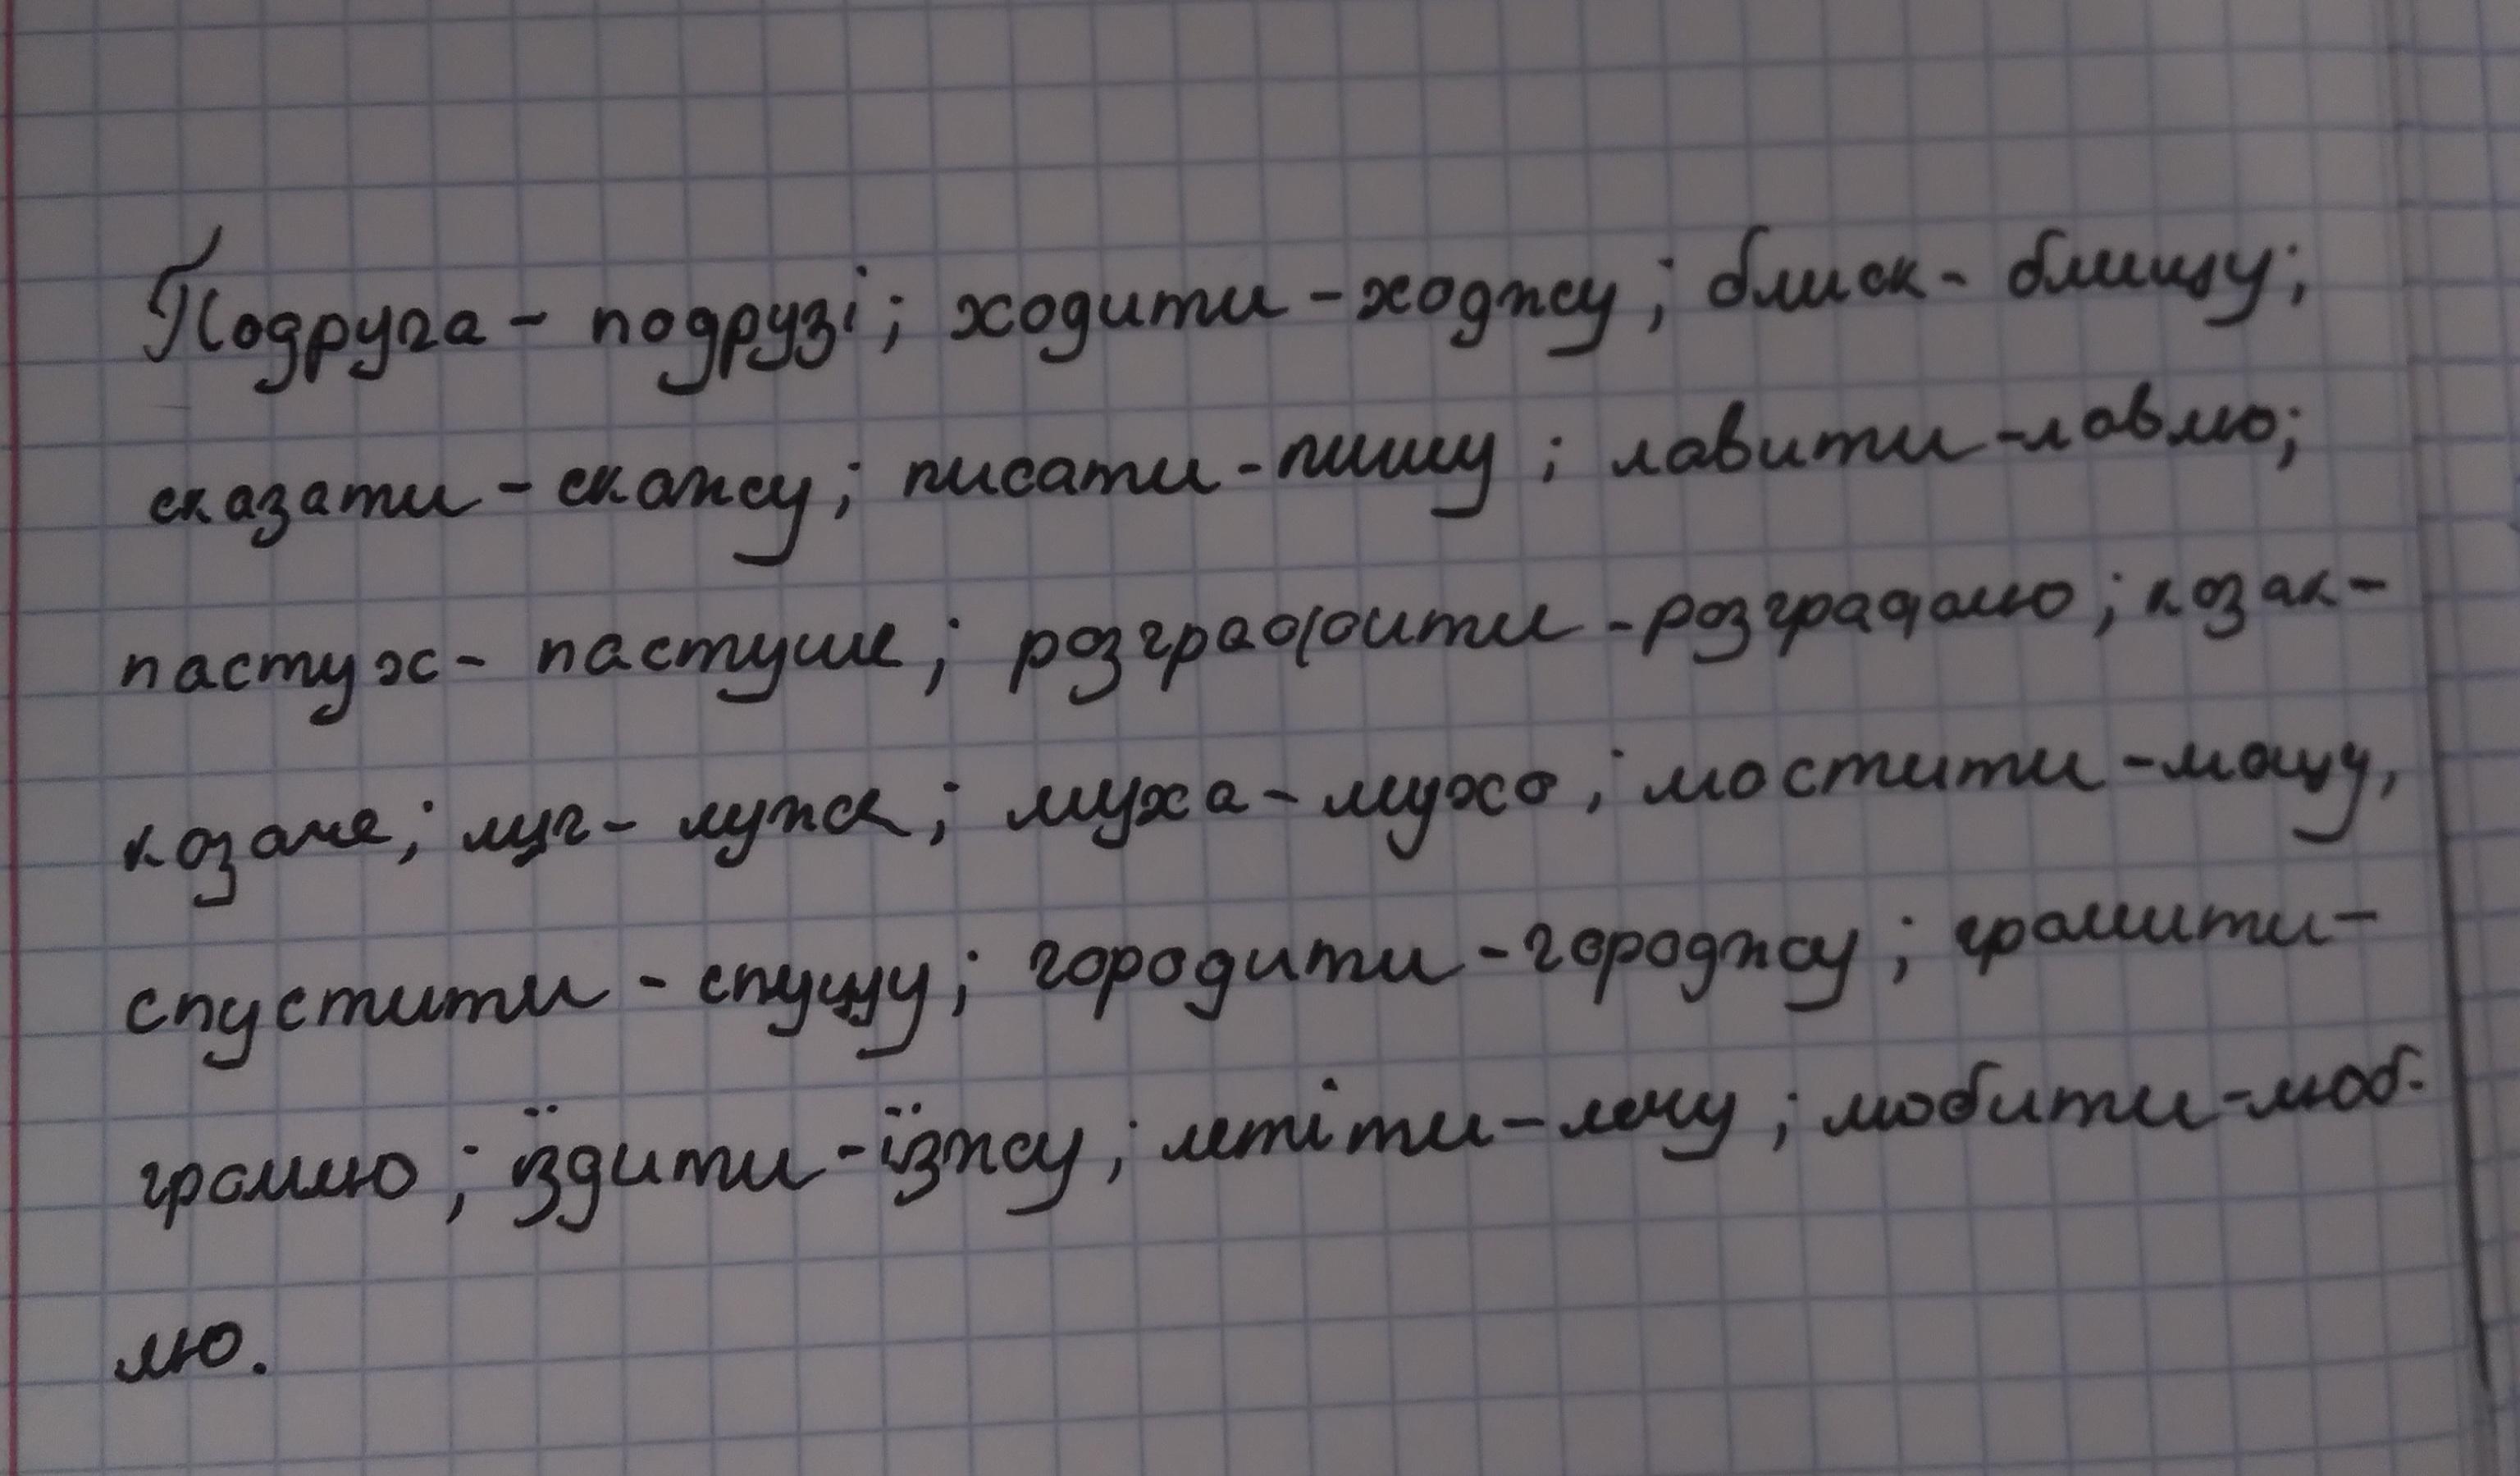 Подруга - подрузі; ходити - ходжу; блиск - блищу;
сказати - скажу; писати - пишу; ловити - ловлю;
пастух - пастуше; розграфити - розграфлю; козак -
козаче; луг - луже; муха - мухо; мостити - мощу,
спустити - спущу; городити - городжу; громити -
громлю; їздити - їзжу; летіти - лечу; любити - люб-
лю.